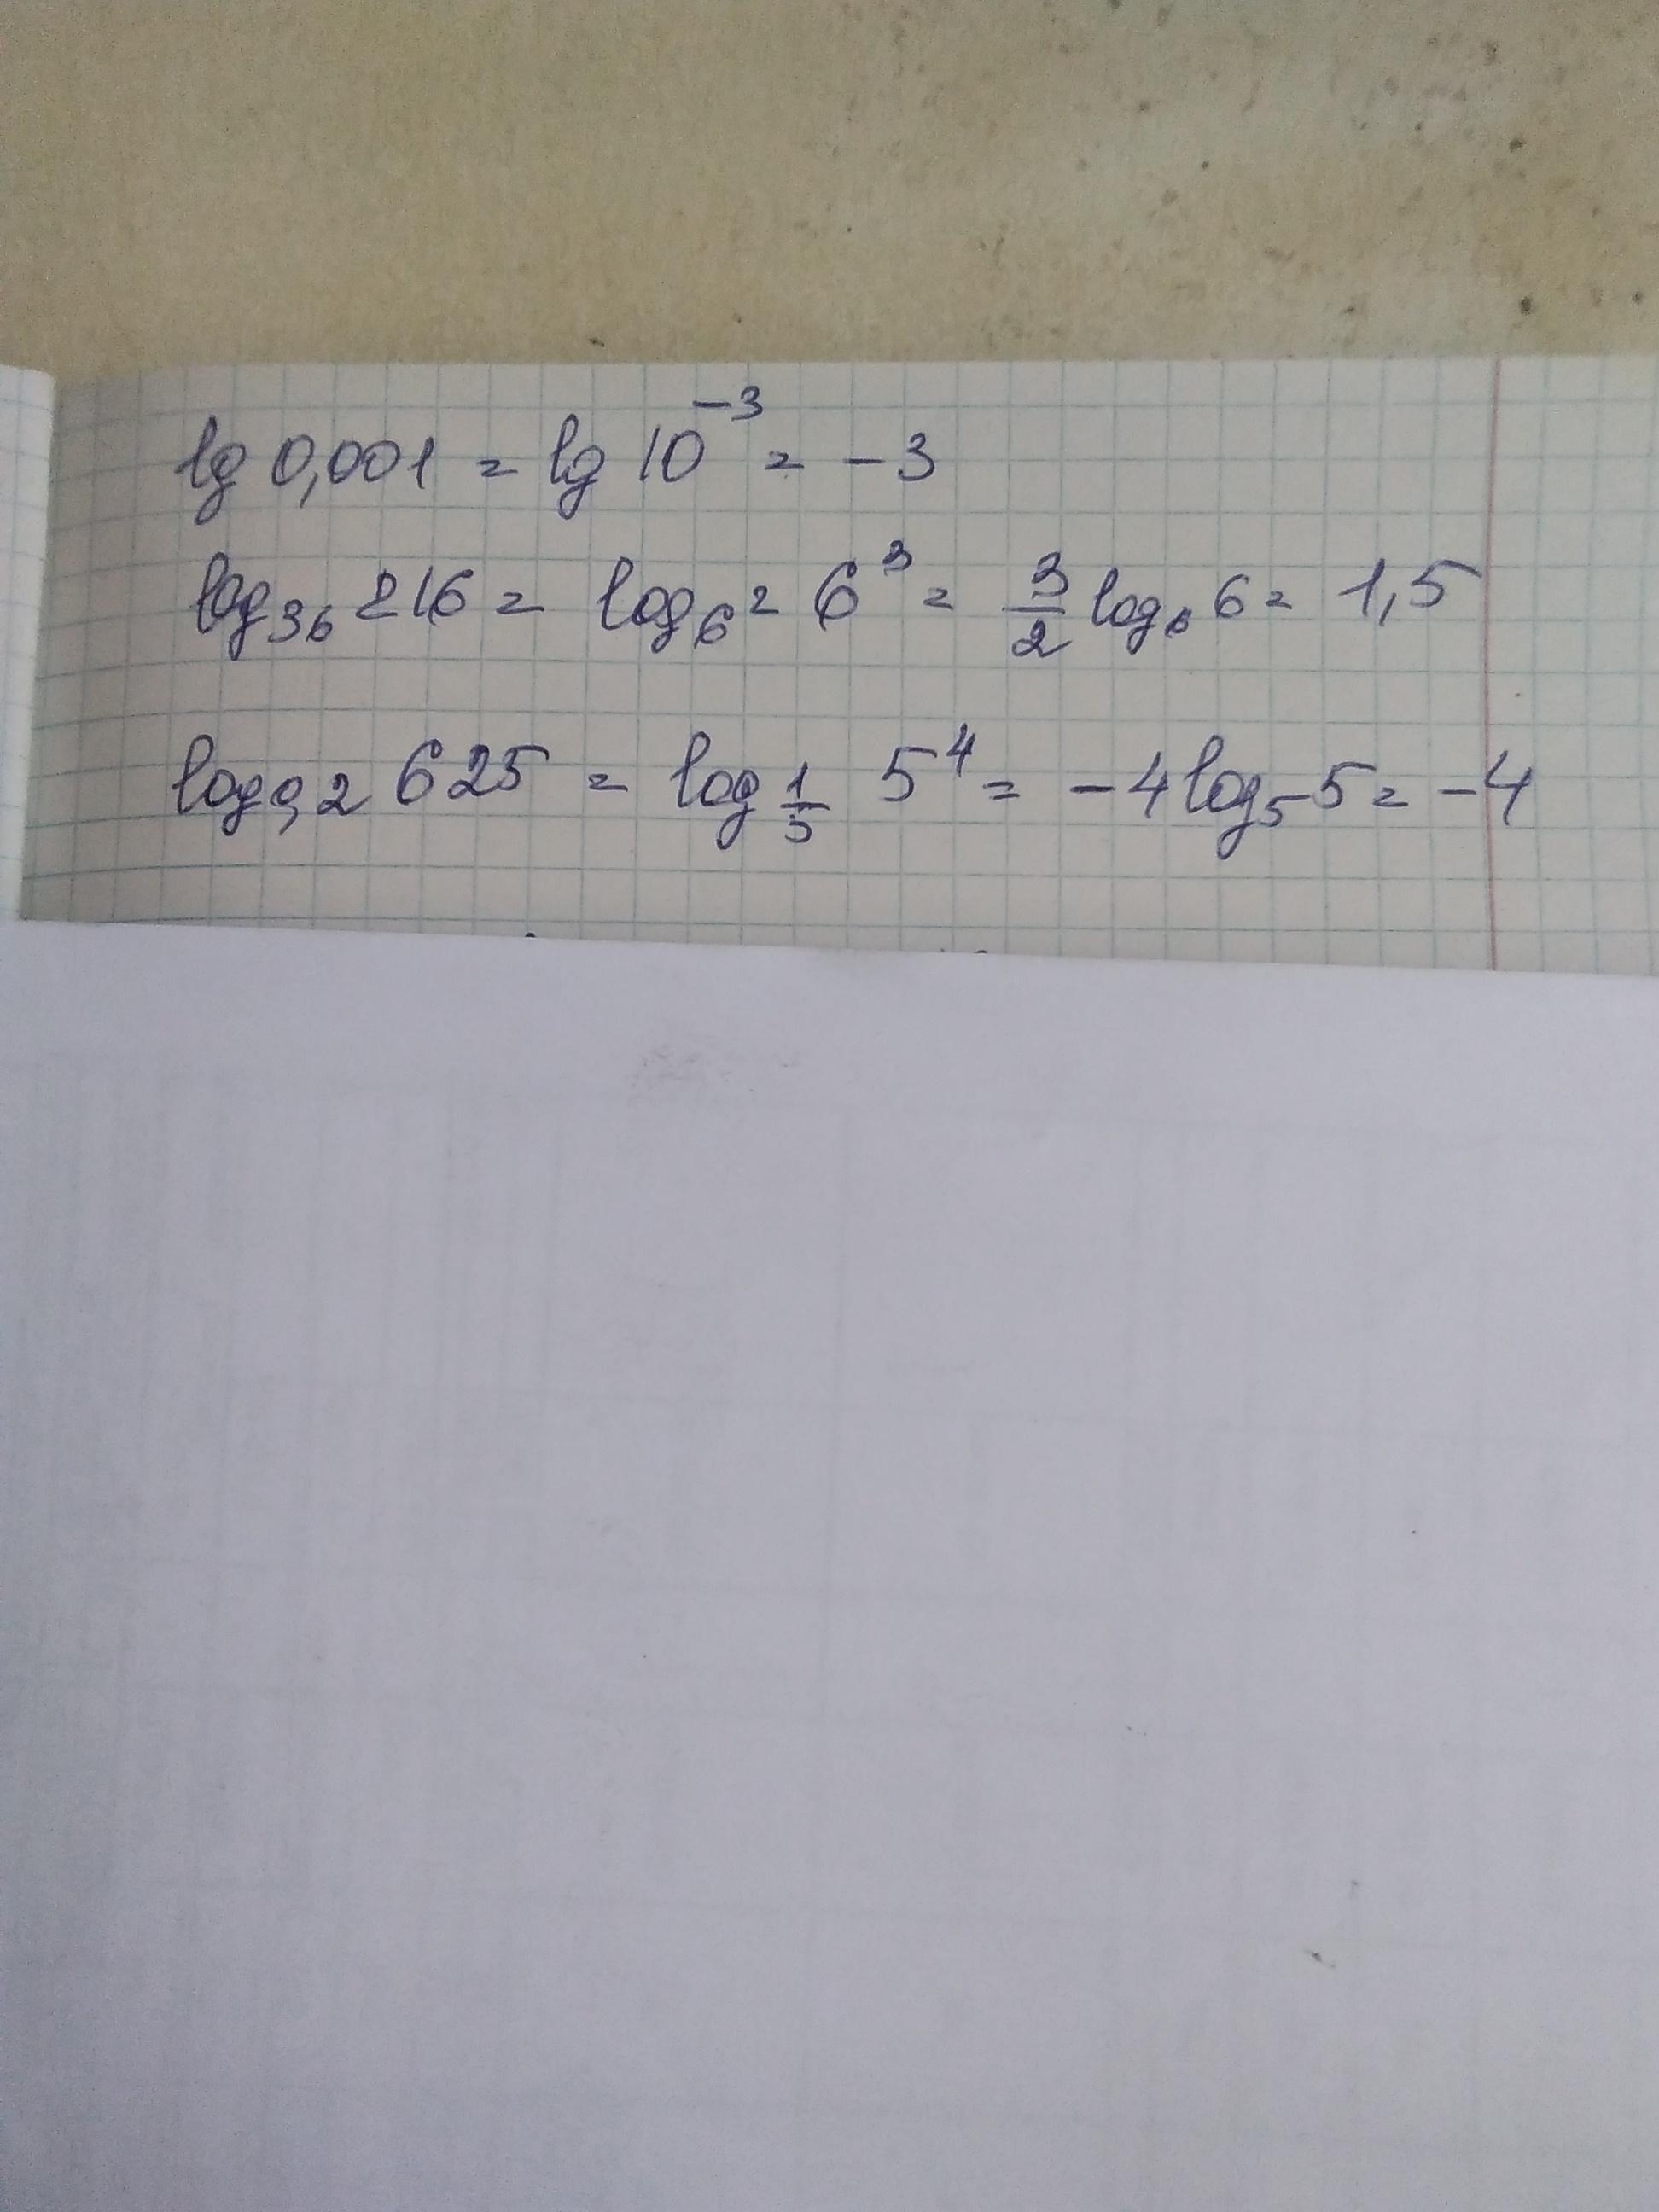 lg 0,001 = lg 10⁻³ = -3
log₃₆ 216 = log₆² 6³ = 3/2 log₆ 6 = 1,5
log₀,₂ 625 = log₁/₅ 5⁴ = -4 log₅ 5 = -4